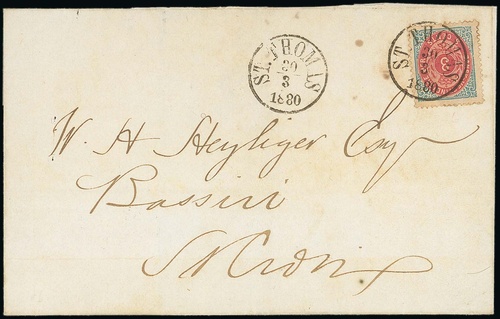 ST. THOMAS
20
3
1880
ST. THOMAS
3
1880
W. H Heyliger Esq
Bassin
St Croix